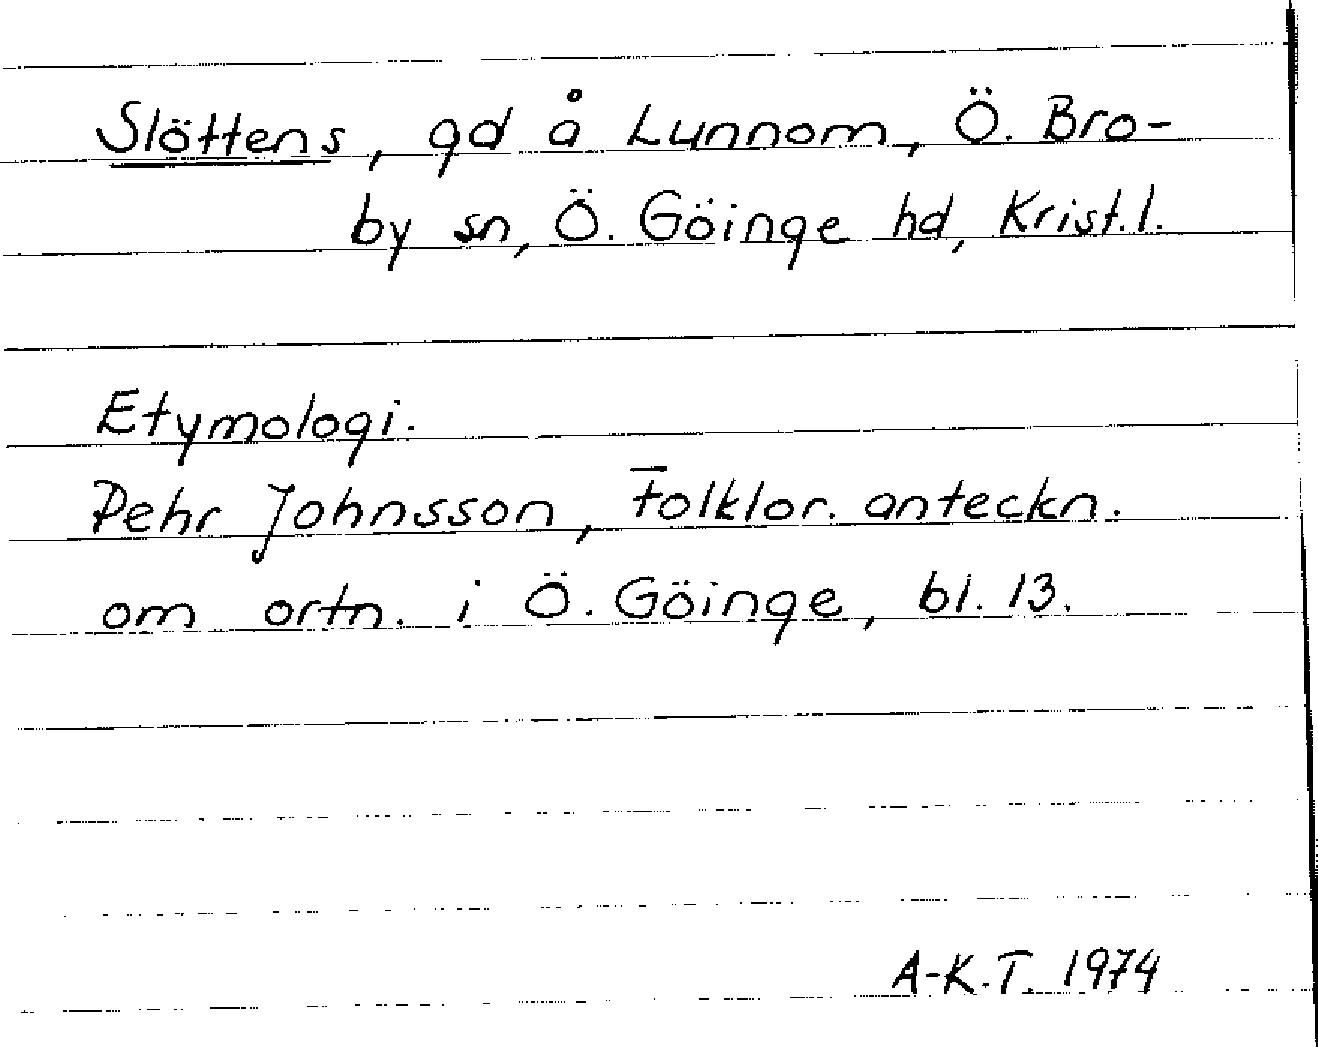 Slöttens, gd å Lunnom, Ö. Bro-
by sn, Ö. Göinge hd, Krist. l.
Etymologi.
Pehr Johnsson, Folklor. anteckn.
om ortn. i Ö. Göinge, bl. 13.
A-K.T. 1974